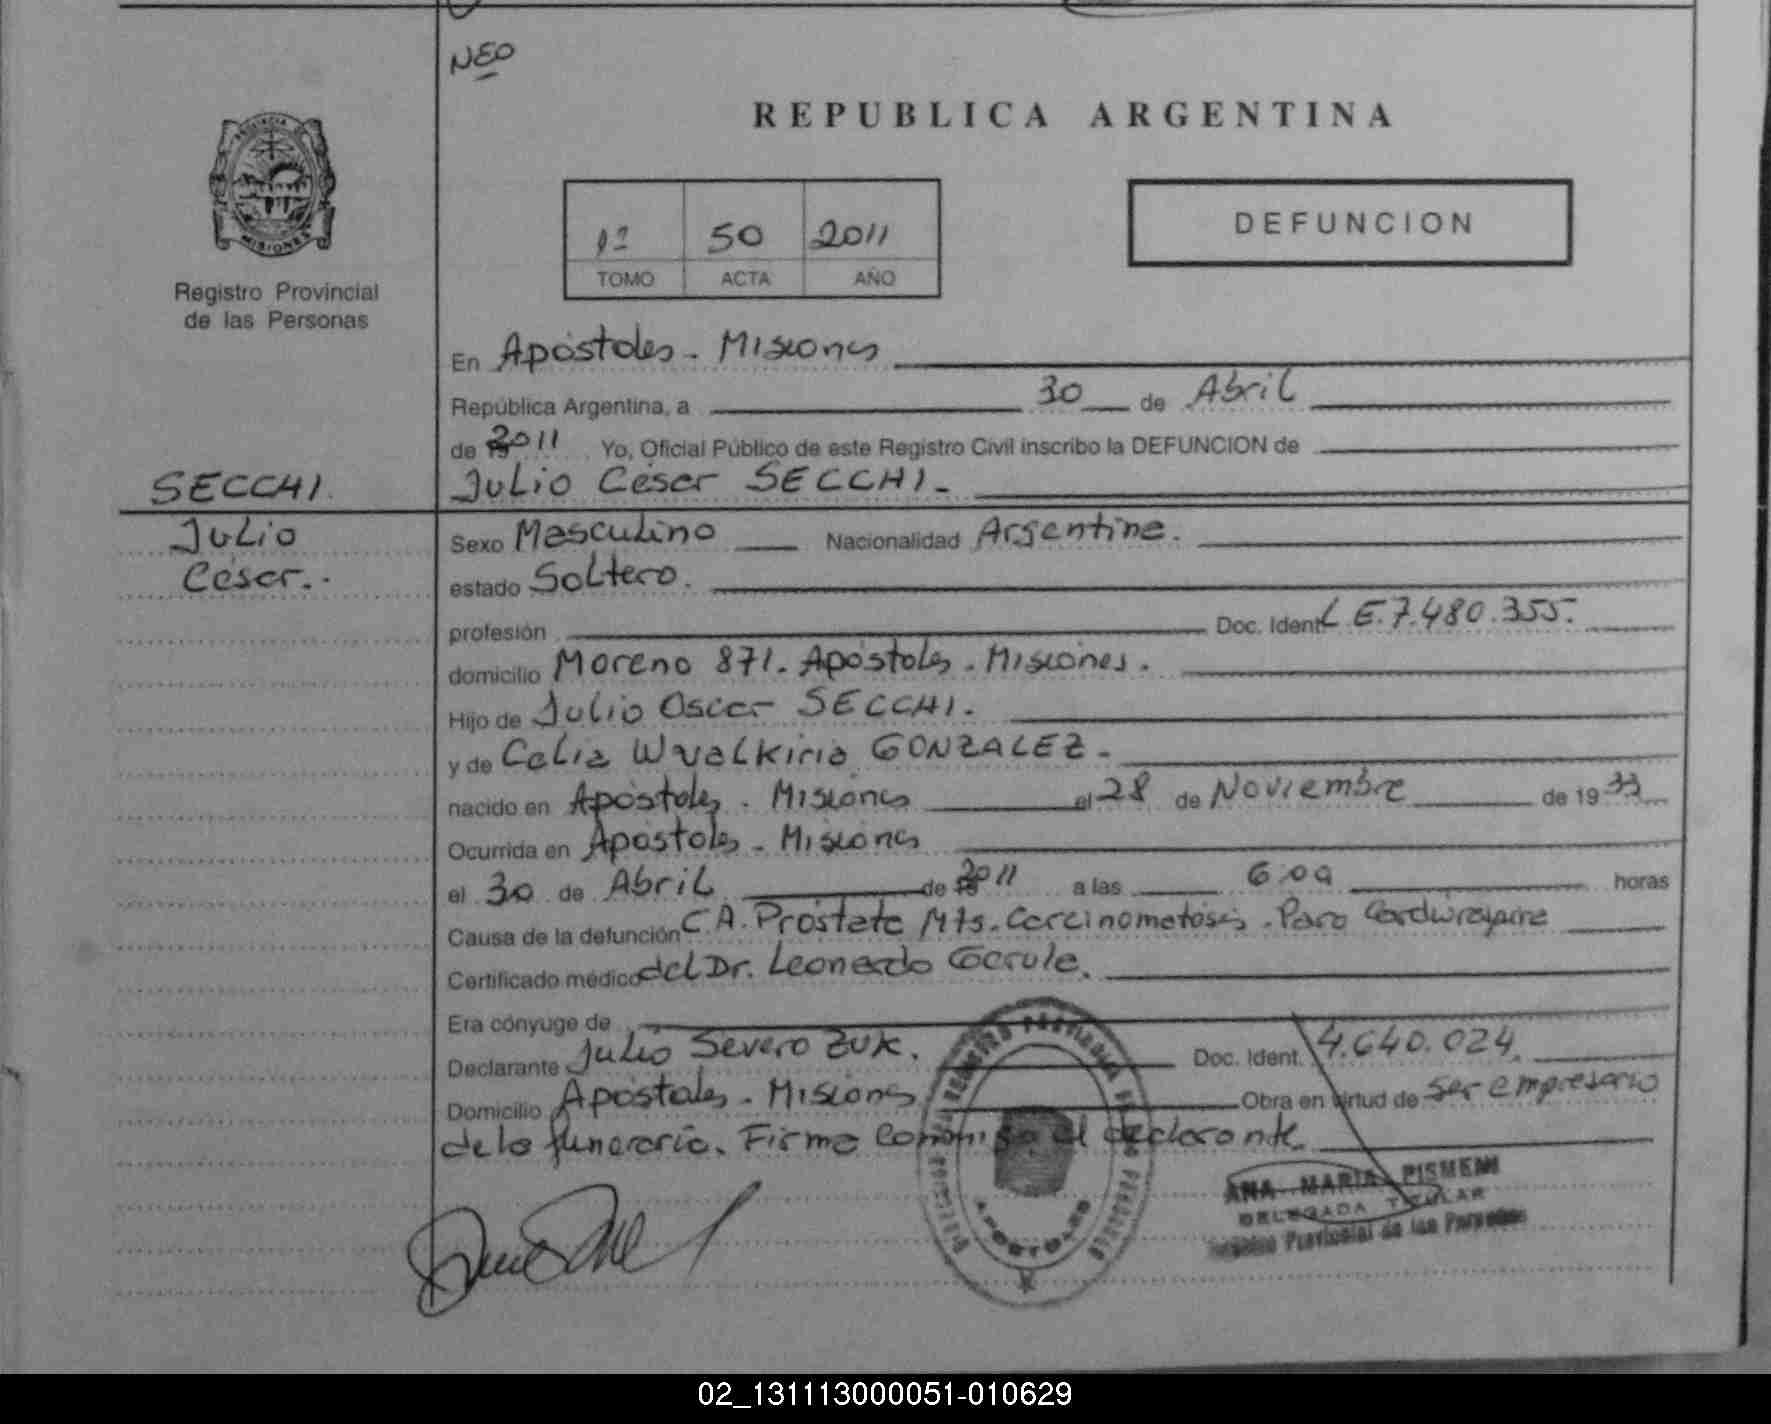 NEO
REPUBLICA ARGENTINA
PROVINCIA DE
MISIONES
Registro Provincial
de las Personas
1º 50 2011
TOMO ACTA AÑO
DEFUNCION
En Apóstoles - Misiones
República Argentina, a 30 de Abril
de 2011 Yo, Oficial Público de este Registro Civil inscribo la DEFUNCION de
SECCHI Julio César SECCHI.-
Julio
César..
Sexo Masculino Nacionalidad Argentina.
estado Soltero.
profesión Doc. Ident L.E. 7.480.355.
domicilio Moreno 871. Apóstoles - Misiones.
Hijo de Julio Oscar SECCHI.
y de Celia Wvalkiria GONZALEZ.-
nacido en Apóstoles - Misiones el 28 de Noviembre de 19 33
Ocurrida en Apóstoles - Misiones
el 30 de Abril de 2011 a las 6:00 horas
Causa de la defunción C.A. Próstata Mts. Carcinomatosis. Paro
Certificado médico del Dr. Leonardo
Era cónyuge de
Declarante Julio Severo ZUK. Doc. Ident. 4.640.024.
Domicilio Apóstoles - Misiones Obra en virtud de ser empresario
de la funeraria. Firma conmigo el declarante.
APOSTOLES
ANA MARIA PISMENI
DELEGADA TITULAR
Provincial de las Personas
02_131113000051-010629